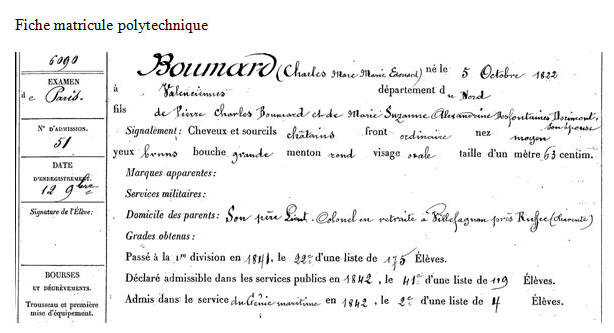 Fiche matricule polytechnique
6090
EXAMEN
de Paris.
N° D'ADMISSION.
51
DATE
D'ENREGISTREMENT.
12 9bre
Signature de l'Élève:
BOURSES
ET DÉGRÈVEMENTS.
Trousseau et première
mise d'équipement.
Boumard (Charles Marc Marie Edouard) né le 5 Octobre 1822
à Valenciennes département du Nord
fils de Pierre Charles Boumard et de Marie Suzanne Alexandrine Desfontaines
son épouse
Signalement: Cheveux et sourcils châtains front ordinaire nez moyen
yeux bruns bouche grande menton rond visage ovale taille d'un mètre 63 centim.
Marques apparentes:
Services militaires:
Domicile des parents: Son père Lieut. Colonel en retraite à Villefagnan près Ruffec (Charente)
Grades obtenus:
Passé à la 1re division en 1841, le 22e d'une liste de 175 Élèves.
Déclaré admissible dans les services publics en 1842, le 41e d'une liste de 119 Élèves.
Admis dans le service du Génie maritime en 1842, le 2e d'une liste de 4 Élèves.